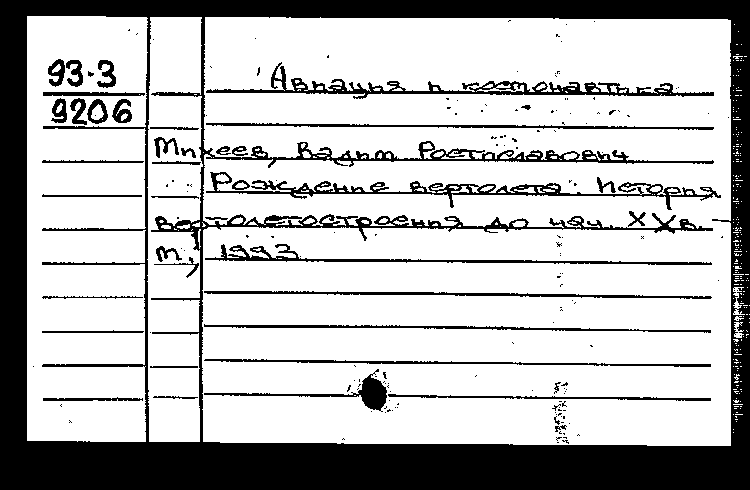 93-3
Авиация и космонавтика
9206
Михеев, Вадим Ростиславович
Рождение вертолета: История
вертолетостроения до нач. XX в. —
М., 1993